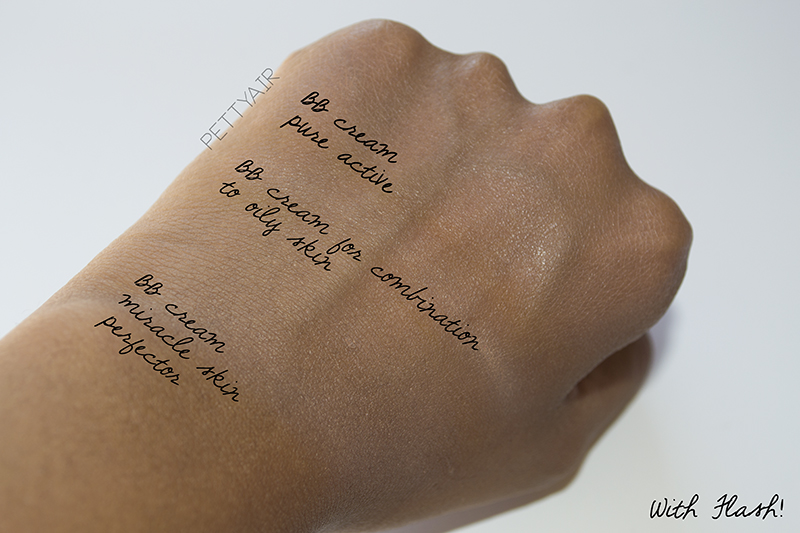 PETTYAIR
BB cream
pure active
BB cream for combination
to oily skin
BB cream
miracle skin
perfector
With Flash!